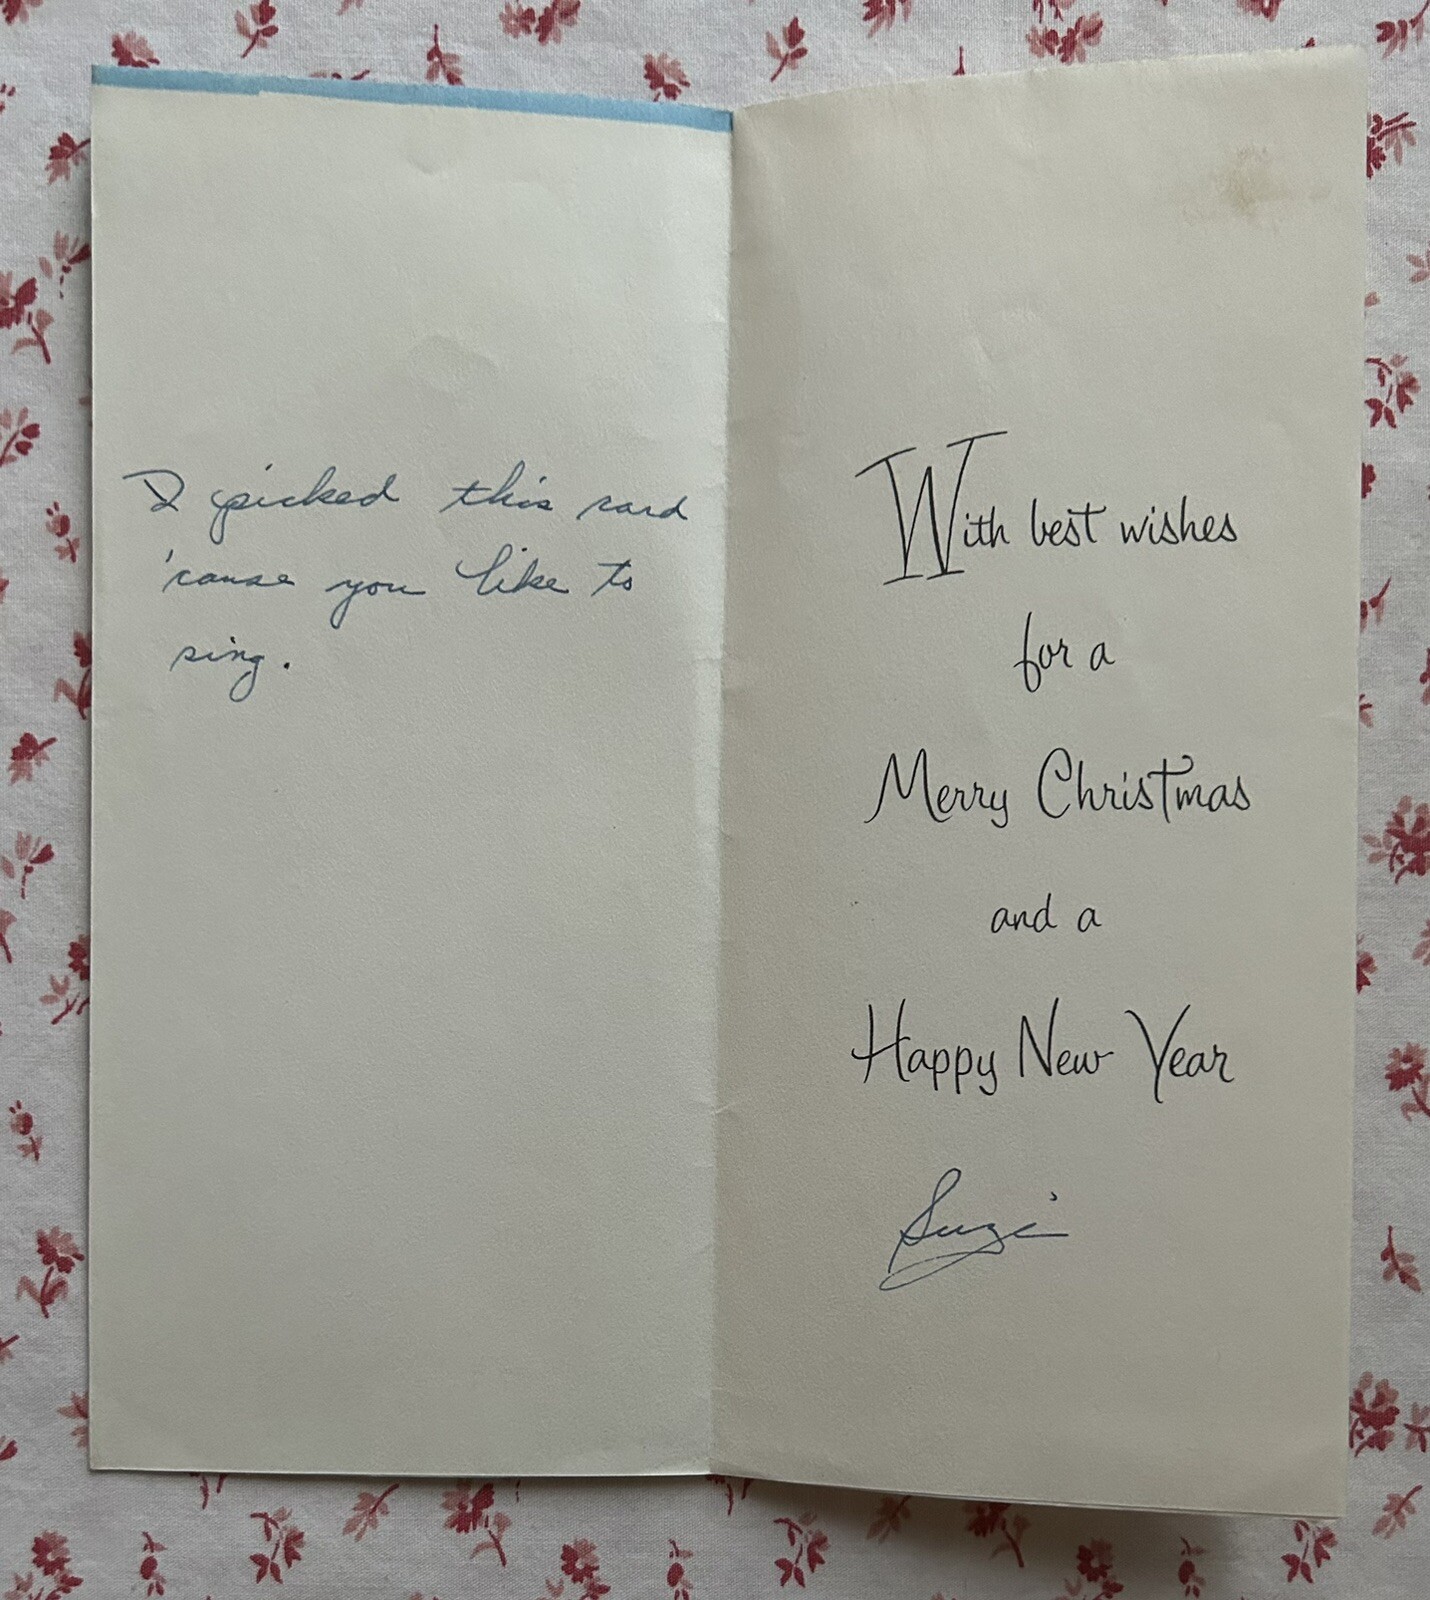 I picked this card
'cause you like to
sing.
With best wishes
for a
Merry Christmas
and a
Happy New Year
Suzi